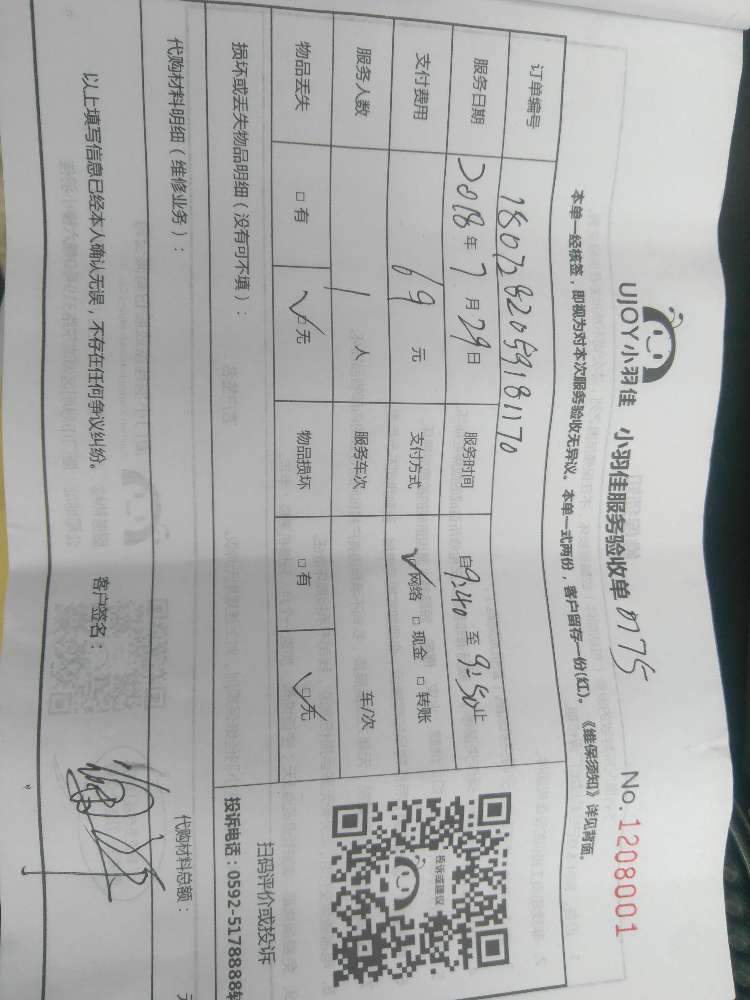 UJOY小羽佳 小羽佳服务验收单 0175 No. 1208001
本单一经核签，即视为对本次服务验收无异议。本单一式两份，客户留存一份(红)。《维保须知》详见背面。
订单编号 1807282059181170
服务日期 2018年7月29日 服务时间 自9:40至9:50止
支付费用 69元 支付方式 网络 □现金 □转账
服务人数 1人 服务车次 车/次
物品丢失 □有 □无 物品损坏 □有 □无
损坏或丢失物品明细（没有可不填）：
投诉或建议
扫码评价或投诉
投诉电话：0592-5178888转
代购材料明细（维修业务）： 代购材料总额：
以上填写信息已经本人确认无误，不存在任何争议纠纷。 客户签名：